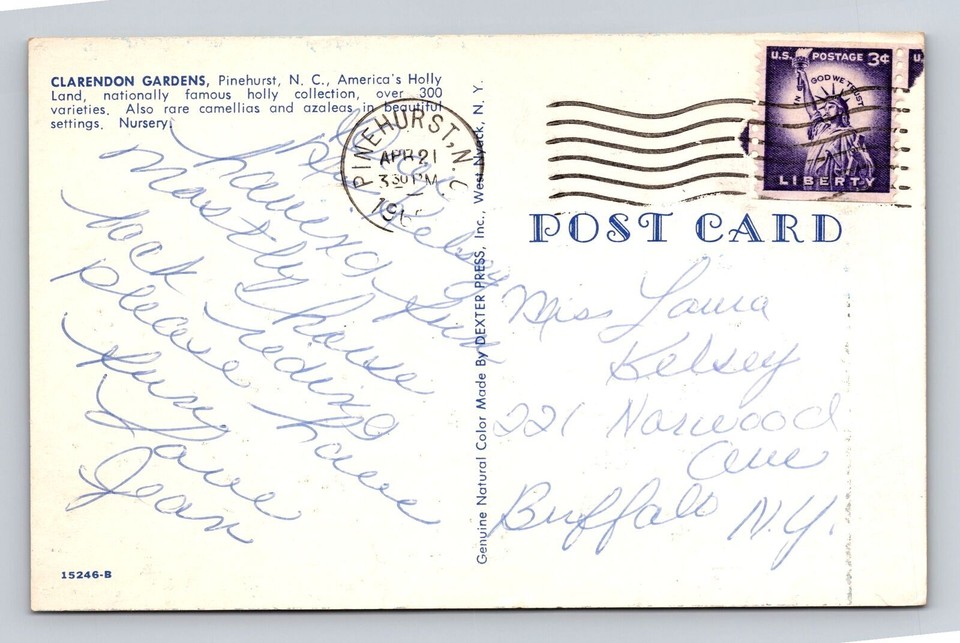 CLARENDON GARDENS, Pinehurst, N. C., America's Holly
Land, nationally famous holly collection, over 300
varieties. Also rare camellias and azaleas in beautiful
settings. Nursery.
Kelsey
having fun
mostly horse
back reding
please have
fun
Love
Jean
15246-B
Genuine Natural Color Made By DEXTER PRESS, Inc., West Nyack, N. Y.
PINEHURST, N.C.
APR 21
330 PM
19
U.S. POSTAGE 3¢
IN GOD WE TRUST
LIBERTY
U.
POST CARD
Miss Laura
Kelsey
221 Norwood
Ave
Buffalo N.Y.